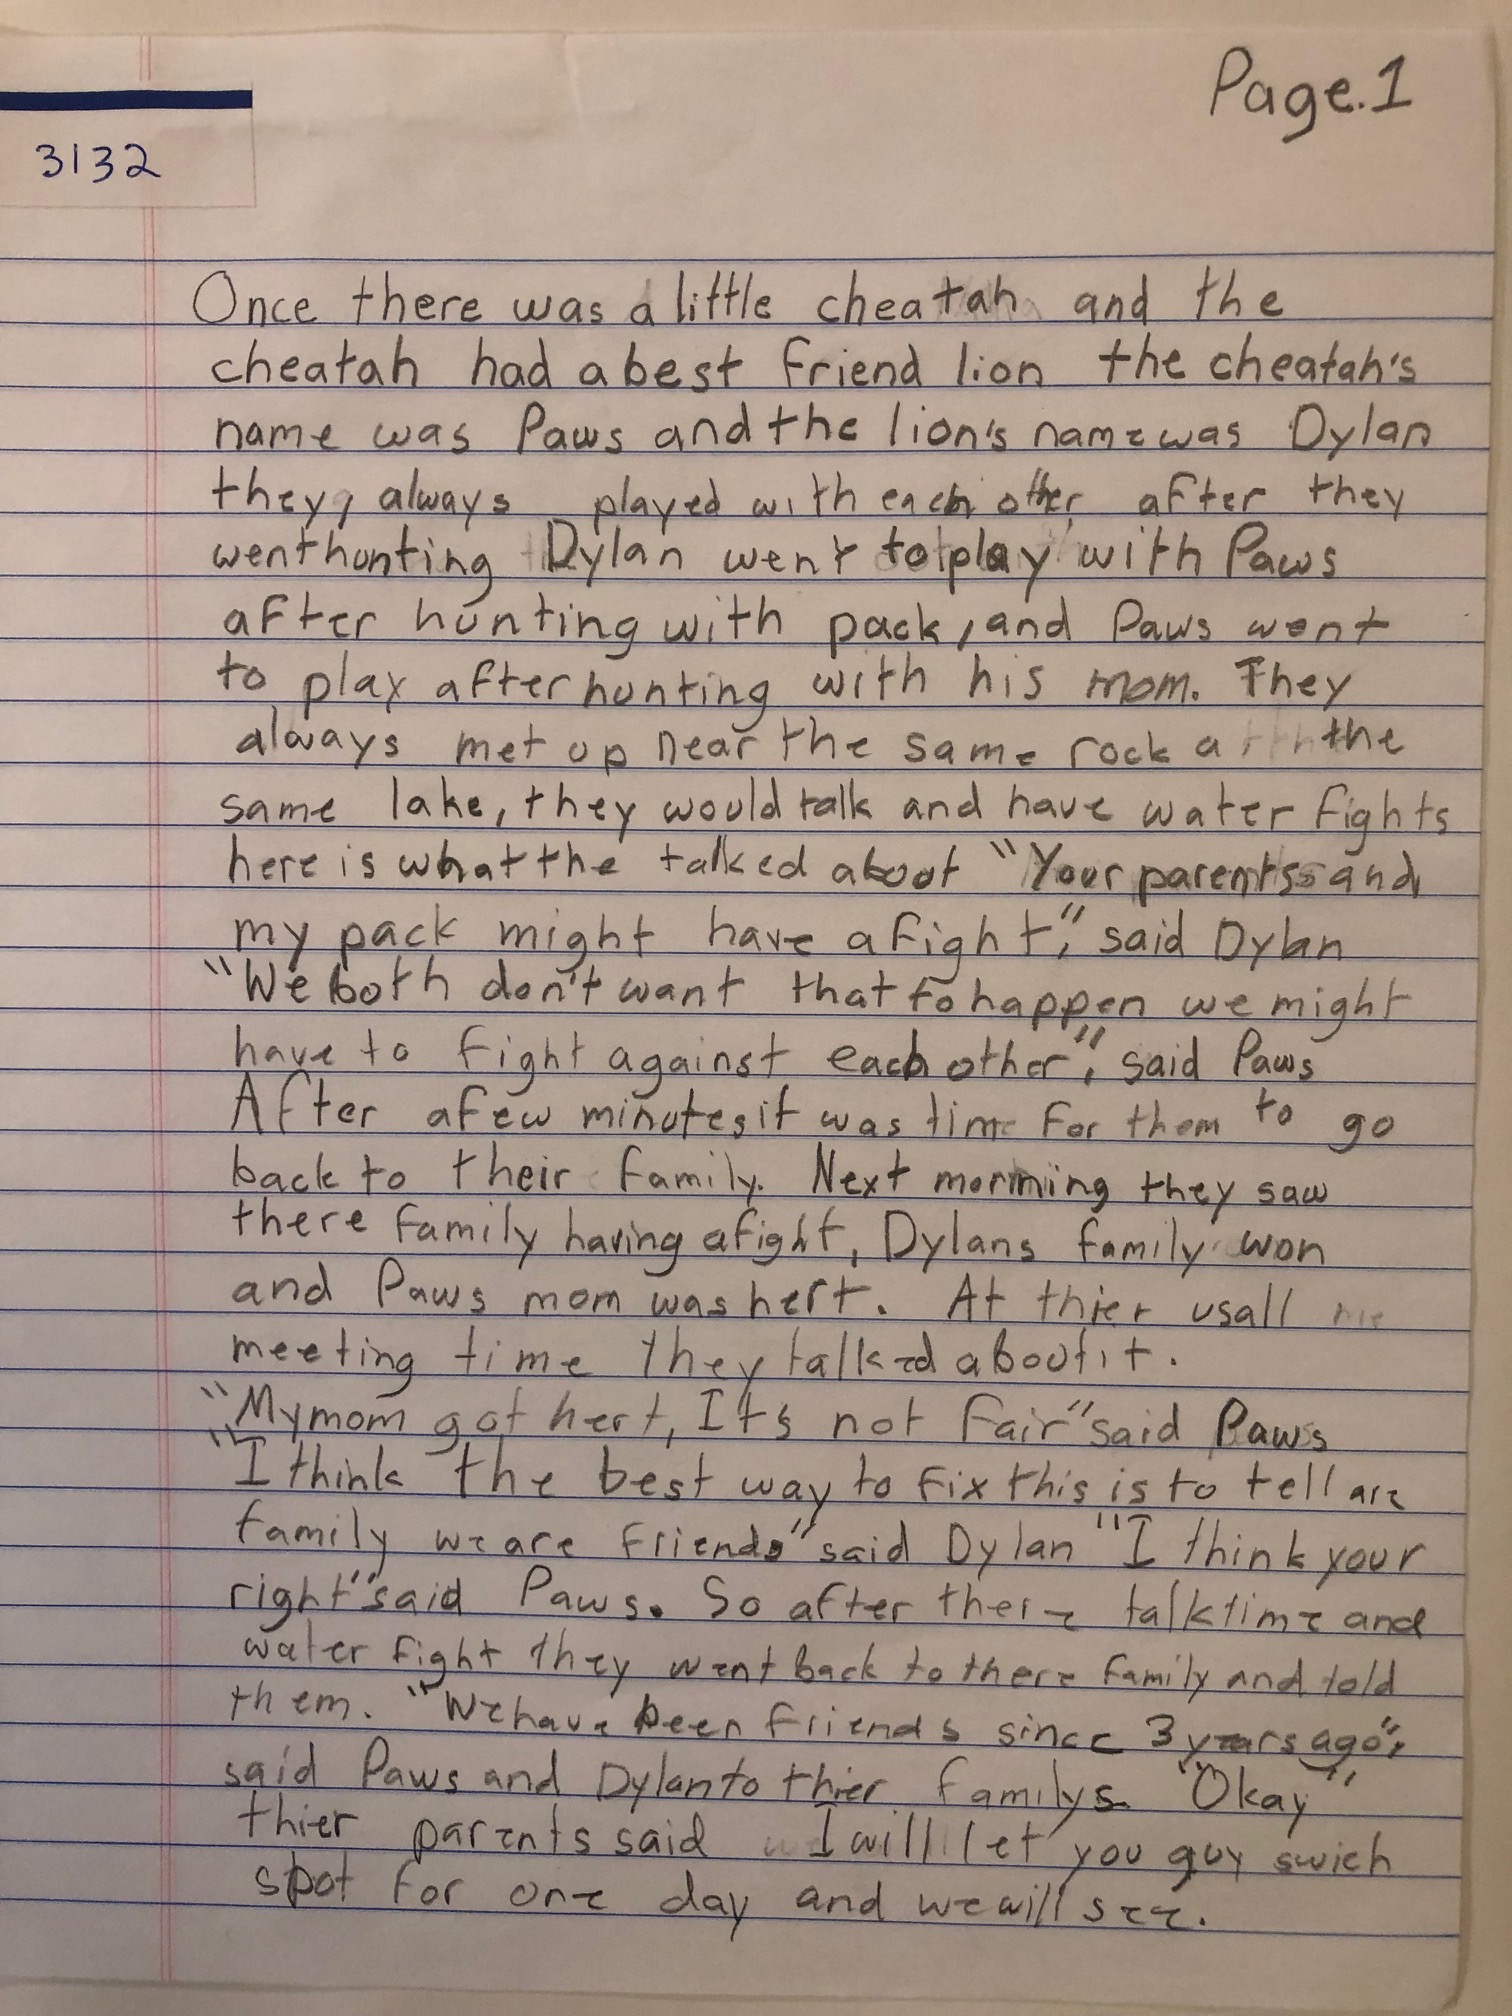 Page.1
3132
Once there was a little cheatah and the
cheatah had a best friend lion the cheatah's
name was Paws and the lion's name was Dylan
they, always played with each other after they
went hunting Dylan went to play with Paws
after hunting with pack, and Paws went
to play after hunting with his mom. They
always met up near the same rock at the
same lake, they would talk and have water fights
here is what the talked about "Your parents and
my pack might have a fight," said Dylan
"We both don't want that to happen we might
have to fight against each other", said Paws
After a few minutes it was time for them to go
back to their family. Next morning they saw
there family having a fight, Dylans family won
and Paws mom was hert. At thier usall
meeting time they talked about it.
"My mom got hert, It's not fair" said Paws
"I think the best way to fix this is to tell are
family we are friends" said Dylan "I think your
right" said Paws. So after there talk time and
water fight they went back to there family and told
them. "We have been friends since 3 years ago",
said Paws and Dylan to thier familys. "Okay",
thier parents said I will let you guy swich
spot for one day and we will see.